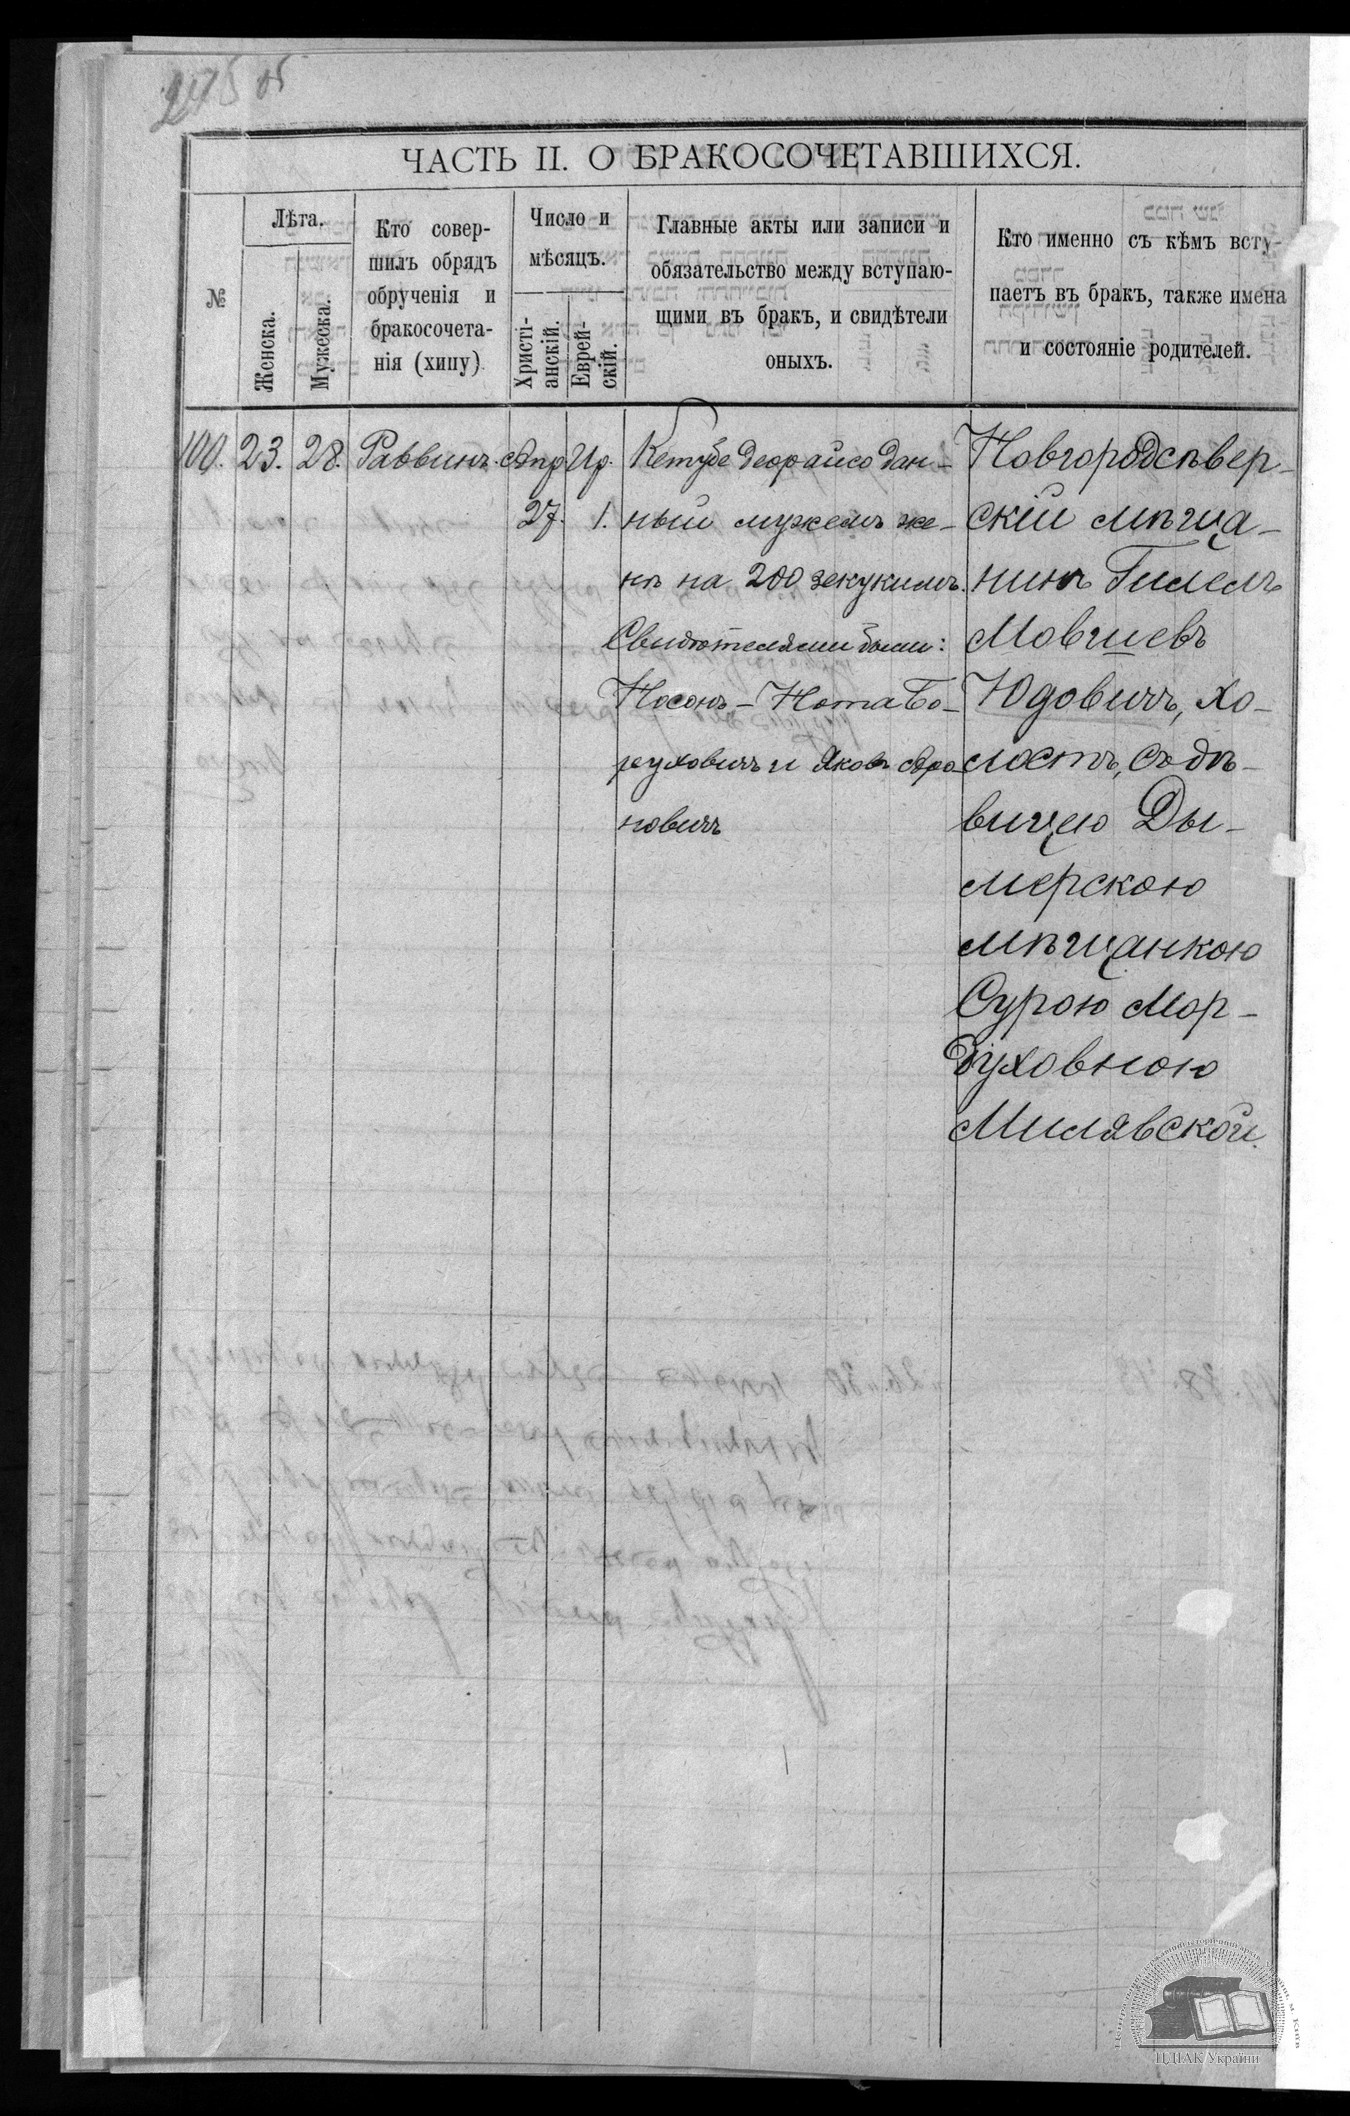 275 об
ЧАСТЬ II. О БРАКОСОЧЕТАВШИХСЯ.
№
Лѣта.
Женска.
Мужеска.
Кто совер-
шилъ обрядъ
обрученія и
бракосочета-
нія (хипу)
Число и
мѣсяцъ.
Христі-
анскій.
Еврей-
скій.
Главные акты или записи и
обязательство между вступаю-
щими въ бракъ, и свидѣтели
оныхъ.
Кто именно съ кѣмъ всту-
паетъ въ бракъ, также имена
и состояніе родителей.
100.
23.
28.
Раввинъ.
Апр
27.
Ир.
1.
Кетубе деорайсо дан-
ный мужемъ же-
нѣ на 200 зекукимъ.
Свидѣтелями были:
Носонъ-Нота Бо-
руховичъ и Яковъ Аро
новичъ
Новгородсѣвер-
скій мѣща-
нинъ Гилель
Мовшевъ
Юдовичъ, хо-
лостъ, съ дѣ-
вицею Ды-
мерскою
мѣщанкою
Сурою Мор-
духовною
Милявской.
ЦДІАК України